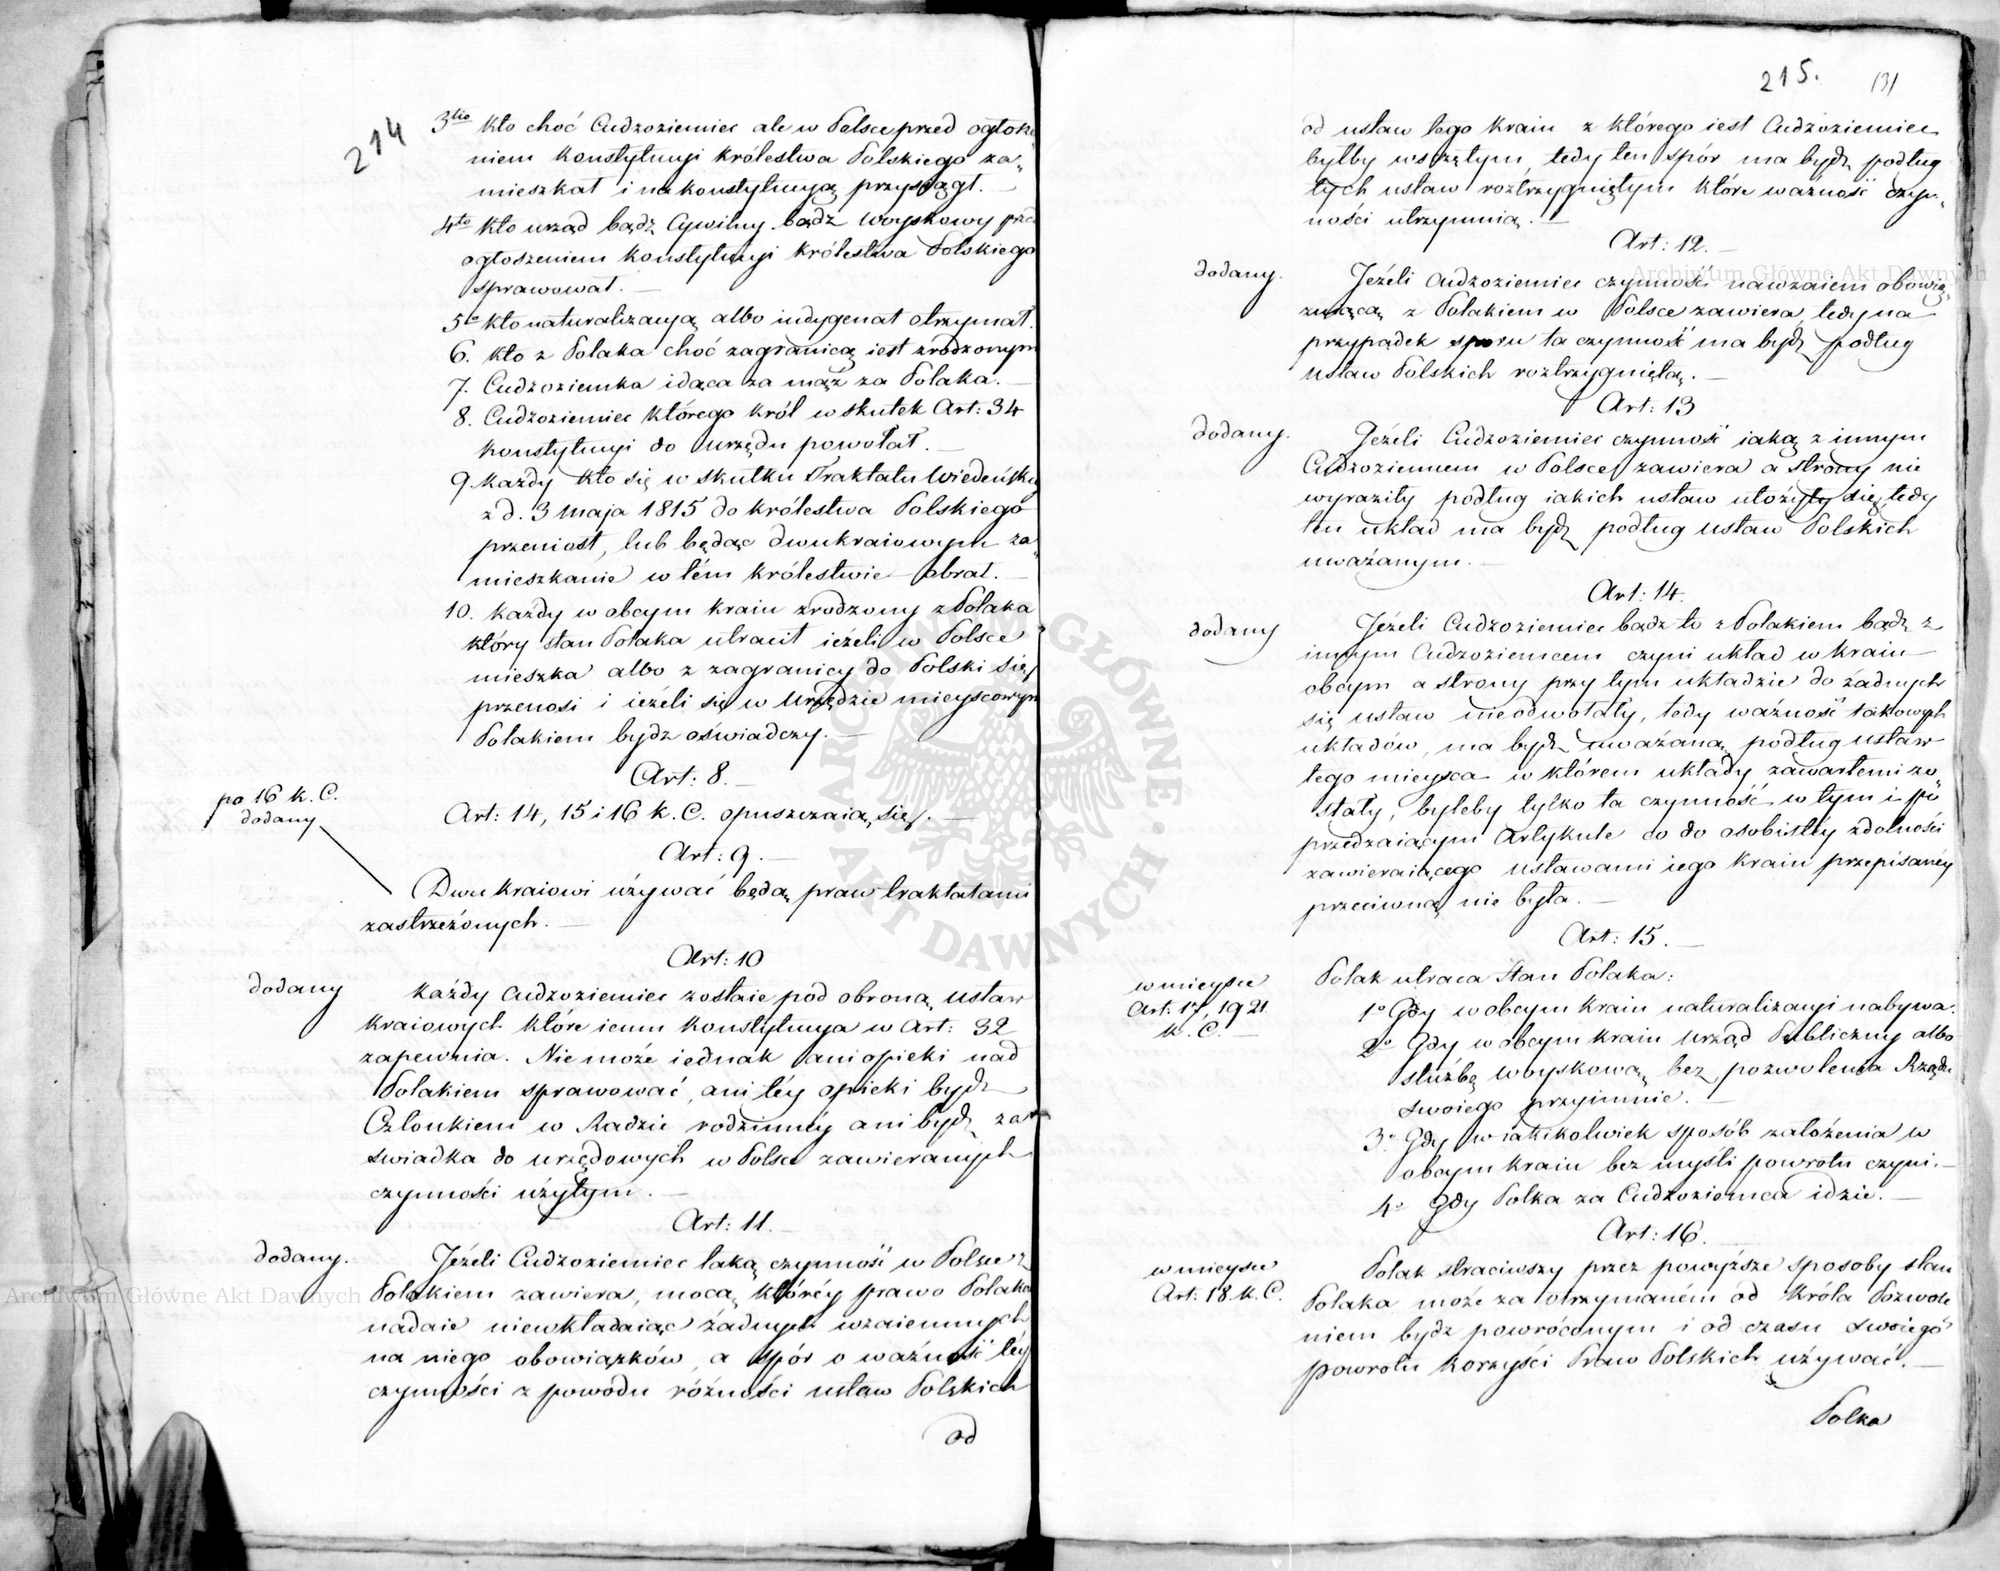 214
3tio kto choć Cudzoziemiec ale w Polsce przed ogłosze
niem konstytucyi królestwa Polskiego za„
mieszkał i na konstytucyą przysiągł. —
4to kto urząd bądź Cywilny bądź woyskowy przed
ogłoszeniem konstytucyi królestwa Polskiego
sprawował. —
5to kto naturalizacyą albo indygenat otrzymał.
6. kto z Polaka choć zagranicą iest zrodzonym
7. Cudzoziemka idąca za mąż za Polaka. —
8. Cudzoziemiec którego król w skutek Art: 34
konstytucyi do urzędu powołał. —
9. każdy kto się w skutku Traktatu Wiedeńskiego
z d. 3 maja 1815 do królestwa Polskiego
przeniosł, lub będąc dwukraiowym za„
mieszkanie w tém królestwie obrał. —
10. każdy w obcym kraiu zrodzony z Polaka
który stan Polaka utracił ieżeli w Polsce
mieszka albo z zagranicy do Polski się
przenosi i ieżeli się w urzędzie mieyscowym
Polakiem bydź oświadczy. —
Art: 8. —
po 16 k. C.
dodany
Art: 14, 15 i 16 k. C. opuszczaią się. —
Art: 9. —
Dwukraiowi używać będą praw traktatami
zastrzeżonych. —
Art: 10
dodany
każdy Cudzoziemiec zostaie pod obroną ustaw
kraiowych które iemu konstytucya w Art: 32
zapewnia. Nie może iednak ani opieki nad
Polakiem sprawować, ani téy opieki bydź
Członkiem w Radzie rodzinnéy ani bydź za
swiadka do urzędowych w Polsce zawieranych
czynności użytym. —
Art: 11. —
dodany.
Jeżeli Cudzoziemiec taką czynność w Polsce z
Polakiem zawiera, mocą któréy prawo Polaka
nadaie niewkładaiąc żadnych wzaiemnych
na niego obowiązków, a spór o ważność téy
czynności z powodu różności ustaw Polskich
od
215.
131
od ustaw tego kraiu z którego iest Cudzoziemiec
byłby wszczętym, tedy ten spór ma bydź podług
tych ustaw roztrzygniętym które ważność czyn„
ności utrzymuią. —
Art: 12. —
dodany.
Jeżeli Cudzoziemiec czynność nawzaiem obowią„
zuiącą z Polakiem w Polsce zawiera, tedy na
przypadek sporu ta czynność ma bydź podług
ustaw Polskich roztrzygniętą. —
Art: 13
dodany.
Jeżeli Cudzoziemiec czynność iaką z innym
Cudzoziemcem w Polsce zawiera a strony nie
wyraziły podług iakich ustaw ułożyły się, tedy
ten układ ma bydź podług ustaw Polskich
uważanym. —
Art: 14.
dodany
Jeżeli Cudzoziemiec bądź to z Polakiem bądź z
innym Cudzoziemcem czyni układ w kraiu
obcym a strony przy tym układzie do żadnych
się ustaw nieodwołały, tedy ważność takowych
układów, ma bydź uważaną podług ustaw
tego mieysca w którem układy zawartemi zo„
stały, byleby tylko ta czynność w tym i po
przedzaiącym Artykule co do osobistéy zdolności
zawieraiącego ustawami iego kraiu przepisanéy
przeciwną nie była. —
Art: 15. —
w mieysce
Art. 17, 19 21
k. C. —
Polak utraca Stan Polaka:
1o Gdy w obcym kraiu naturalizacyi nabywa.
2o Gdy w obcym kraiu urząd Publiczny albo
służbę woyskową bez pozwolenia Rządu
swoiego przyimuie. —
3o Gdy w iakikolwiek sposób założenia w
obcym kraiu bez myśli powrotu czyni. —
4o Gdy Polka za Cudzoziemca idzie. —
Art: 16.
w mieysce
Art: 18 k. C.
Polak straciwszy przez powyższe sposoby stan
Polaka może za otrzymaném od króla Pozwole
niem bydź powróconym i od czasu swoiego
powrotu korzyści Praw Polskich używać. —
Polka
Archiwum Główne Akt Dawnych
Archiwum Główne Akt Dawnych
ARCHIWUM GŁÓWNE · AKT DAWNYCH ·